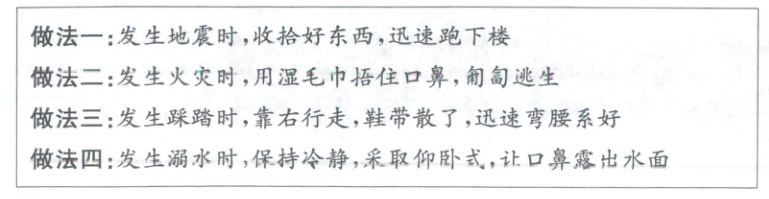 做法一:发生地震时,收拾好东西,迅速跑下楼
做法二:发生火灾时,用湿毛巾捂住口鼻,匍匐逃生
做法三:发生踩踏时,靠右行走,鞋带散了,迅速弯腰系好
做法四:发生溺水时,保持冷静,采取仰卧式,让口鼻露出水面